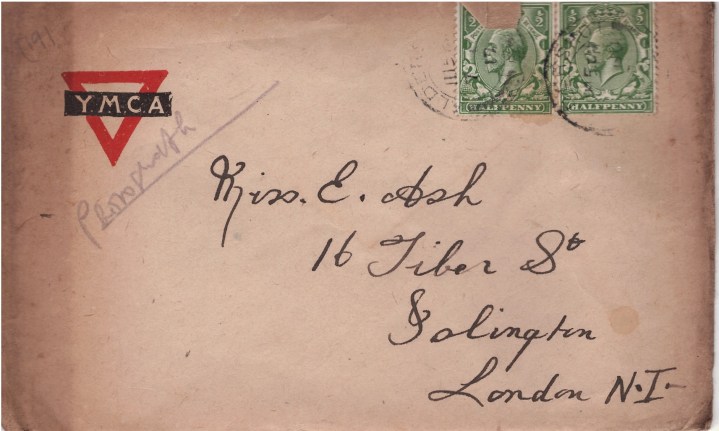 1915
YMCA
½ ½ ½
HALFPENNY HALFPENNY
Miss. E. Ash
16 Tiber St
Islington
London N.I.